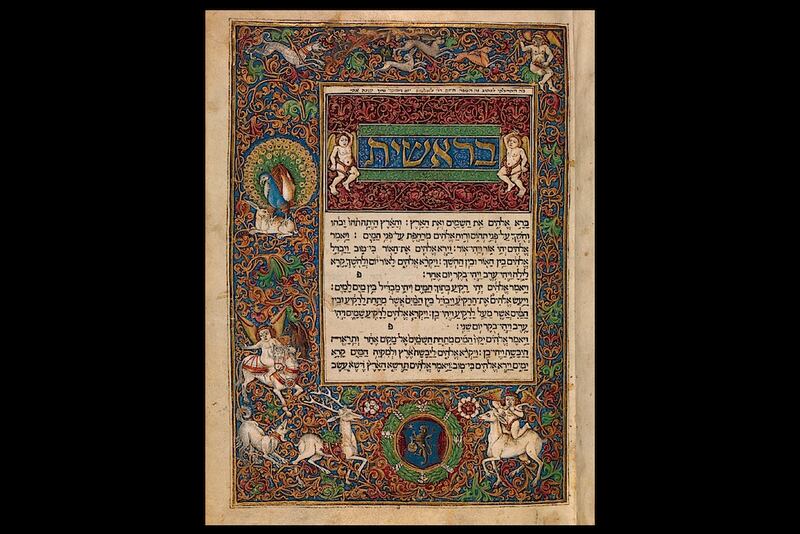 בראשית
ברא אלהים את השמים ואת הארץ : והארץ היתה תהו ובהו
וחשך על פני תהום ורוח אלהים מרחפת על פני המים : ויאמר
אלהים יהי אור ויהי אור : וירא אלהים את האור כי טוב ויבדל
אלהים בין האור ובין החשך : ויקרא אלהים לאור יום ולחשך קרא
לילה ויהי ערב ויהי בקר יום אחד : פ
ויאמר אלהים יהי רקיע בתוך המים ויהי מבדיל בין מים למים :
ויעש אלהים את הרקיע ויבדל בין המים אשר מתחת לרקיע ובין
המים אשר מעל לרקיע ויהי כן : ויקרא אלהים לרקיע שמים ויהי
ערב ויהי בקר יום שני : פ
ויאמר אלהים יקוו המים מתחת השמים אל מקום אחד ותראה
היבשה ויהי כן : ויקרא אלהים ליבשה ארץ ולמקוה המים קרא
ימים וירא אלהים כי טוב : ויאמר אלהים תדשא הארץ דשא עשב